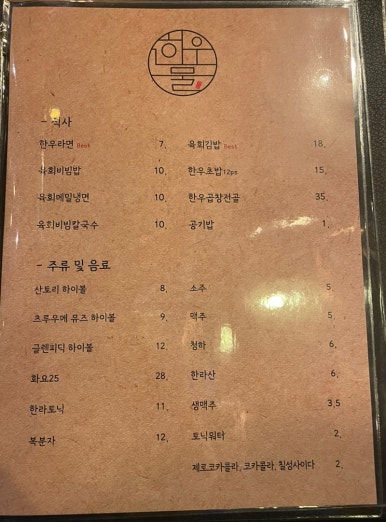 한우물
- 식사
한우라면 Best 7,
육회비빔밥 10,
육회메밀냉면 10,
육회비빔칼국수 10,
육회김밥 Best 18,
한우초밥 12ps 15,
한우곱창전골 35,
공기밥 1,
- 주류 및 음료
산토리 하이볼 8,
츠루우메 유즈 하이볼 9,
글렌피딕 하이볼 12,
화요25 28,
한라토닉 11,
복분자 12,
소주 5,
맥주 5,
청하 6,
한라산 6,
생맥주 3,5
토닉워터 2,
제로코카콜라, 코카콜라, 칠성사이다 2,